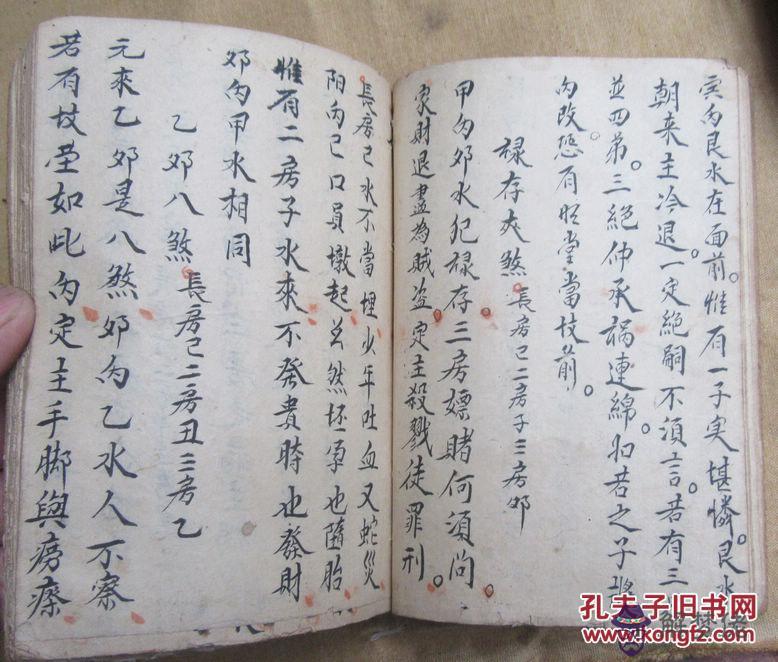 向艮水在面前。惟有一子实堪憐。艮水
朝来主冷退。一定絕嗣不須言。若有三
並四弟。三絕仲承禍連綿。若之子
向改
堂當技前。
祿存夾煞 長房己二房子三房卯
甲向卯水犯祿存三房嫖賭何須问
家財退盡為賊盗定主殺戮徒罪刑。
長房己水不當埋少年吐血又蛇災
阳向己口員墩起公然怀孕也隨胎
惟有二房子水來不發貴時也發財
卯向甲水相同
乙卯八煞 長房己二房丑三房乙
元來乙卯是八煞卯向乙水人不察
若有坟茔如此向定主手脚與痨瘵
孔夫子旧书网
www.kongfz.com
解梦佬